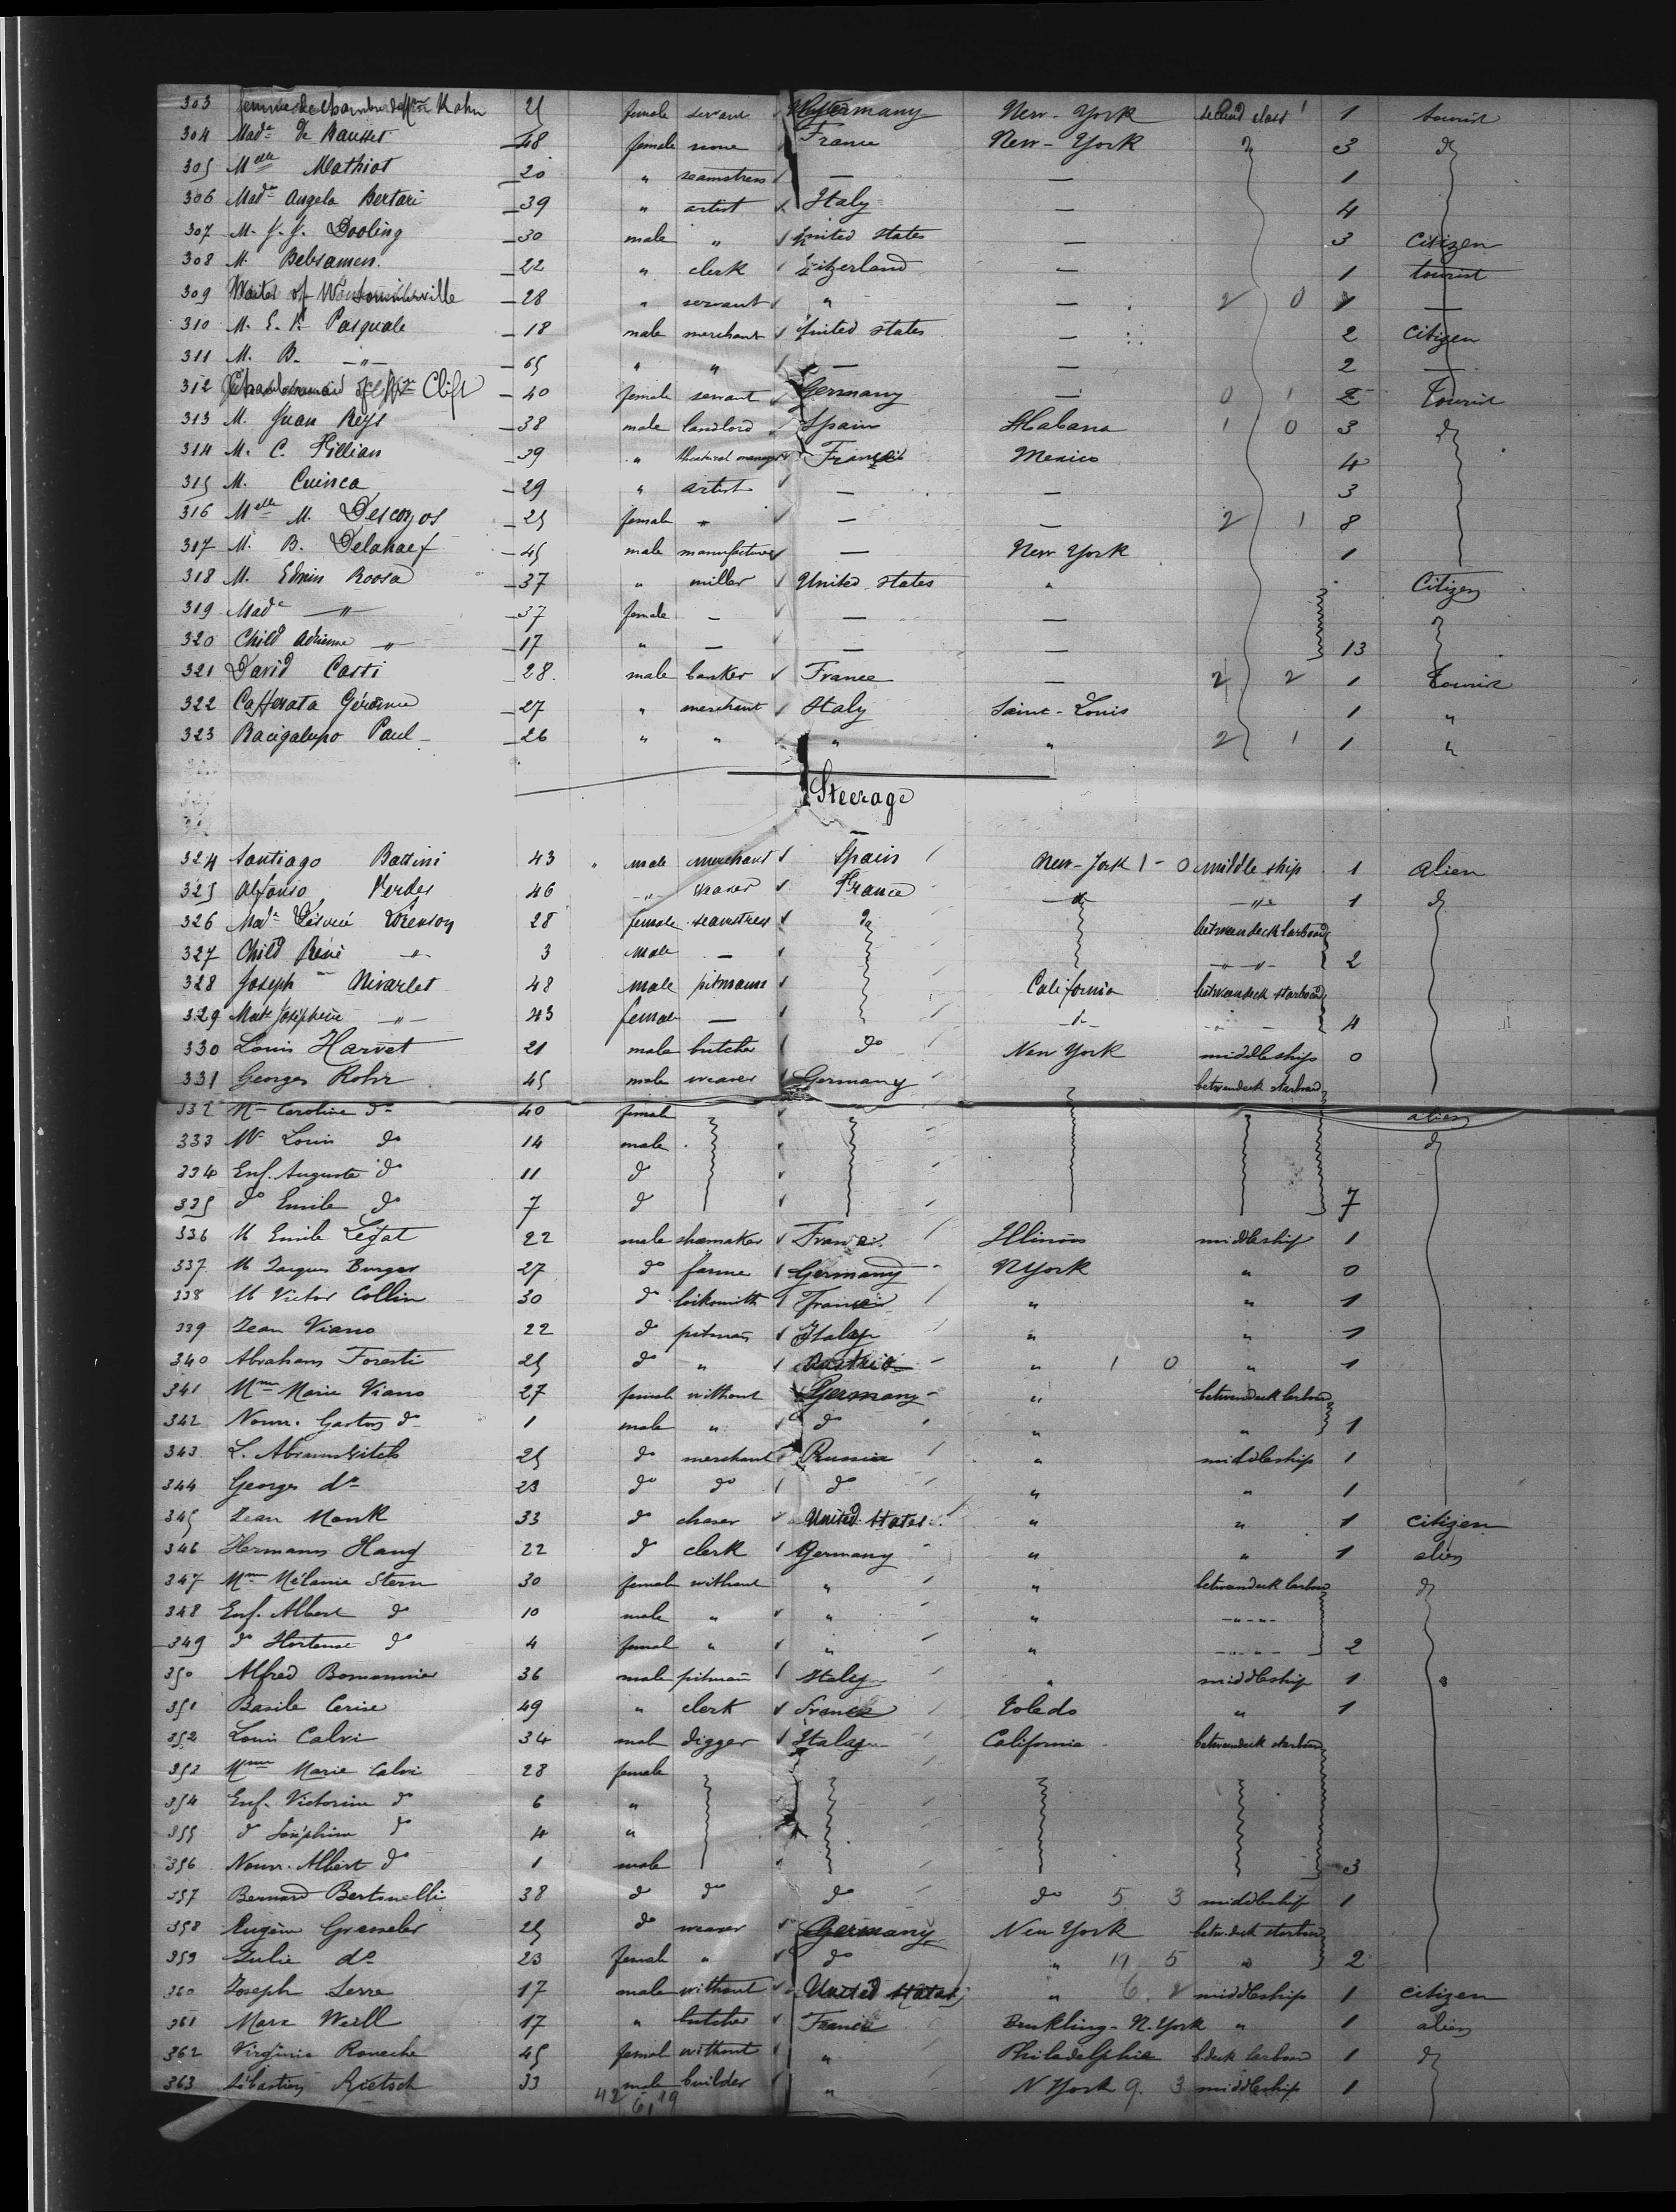 303 femme de chambre de Mme Kahn 21 female servant Germany New-York second class 1 tourist
304 Made de Bausset 48 female none France New-York 3 do
305 Melle Mathiot 20 " seamstress — — 1
306 Made Angela Bertari 39 " artist Italy — 4
307 M. J. J. Dooling 30 male " United States — 3 Citizen
308 M. Bebramen 22 " clerk — 1 tourist
309 28 " servant " — 2 0 1 —
310 M. E. Pasquale 18 male merchant United States — 2 Citizen
311 M. B. —"— 65 " " — — 2 —
312 Clift 40 female servant Germany — 0 1 2 Tourist
313 M. Juan Reys 38 male landlord Spain Habana 1 0 3 do
314 M. C. Fillian 39 " theatrical manager France Mexico 4
315 M. Cuinca 29 " artist — — 3
316 Melle M. Descozos 25 female " — — 2 1 8
317 M. B. Delahaef 45 male manufacturer — New York 1
318 M. Edwin Roosa 37 " miller United States " Citizen
319 Made —"— 37 female — — —
320 Child Adrienne —"— 17 " — — — 13
321 David Casti 28 male banker France — 2 2 1 Tourist
322 Cafferata Gérôme 27 " merchant Italy Saint-Louis 1 "
323 Bacigalupo Paul 26 " " " " 2 1 1 "
Steerage
324 Santiago Battini 43 " male merchant Spain New-York 1 - 0 middle ship 1 alien
325 Alfonso Verdes 46 " weaver France —"— —"— 1 do
326 Made Désirée Lorenson 28 female seamstress do betweendeck larboard
327 Child René —"— 3 male — —"— 2
328 Joseph Nivarlet 48 male pitmann California betweendeck starboard
329 Made Joséphine —"— 43 female — —"— 4
330 Louis Harvet 21 male butcher do New York middleship 0
331 Georges Rohr 45 male weaver Germany betweendeck starboard
332 Me Caroline do 40 female alien
333 Mr Louis do 14 male do
334 Enf. Auguste do 11 do
335 do Emile do 7 do 7
336 M Emile Legat 22 male shoemaker France Illinois middleship 1
337 M Jacques Burger 27 do farme Germany N York " 0
338 M Victor Collin 30 do locksmith France " " 1
339 Jean Viano 22 do pitman Italy " " 1
340 Abraham Foresti 25 do " Austria " 1 0 " 1
341 Mme Marie Viano 27 female without Germany " betweendeck larboard
342 Nourr. Gaston do 1 male " do " " 1
343 L. Abramowitch 25 do merchant Russia " middleship 1
344 Georges do 23 do do do " " 1
345 Jean Monk 33 do chaser United States " " 1 citizen
346 Hermann Haug 22 do clerk Germany " " 1 alien
347 Mme Mélanie Stern 30 female without " " betweendeck larboard do
348 Enf. Albert do 10 male " " " —"—
349 do Hortense do 4 femal " " " —"— 2
350 Alfred Bomonnier 36 male pitman Italy " middleship 1
351 Basile Cerise 49 " clerk France Toledo " 1
352 Louis Calvi 34 male digger Italy California betweendeck starboard
353 Mme Marie Calvi 28 female
354 Enf. Victorine do 6 "
355 do Joséphine do 4 "
356 Nourr. Albert do 1 male 3
357 Bernard Bertonelli 38 do do do do 5 3 middleship 1
358 Eugène Gresseler 25 do weaver Germany New York betw. deck starboard
359 Julie do 23 female " do " 19 5 " 2
360 Joseph Serre 17 male without United States " 6. 2 middleship 1 citizen
361 Marx Weill 17 " butcher France Brukling-N.York " 1 alien
362 Virginie Roneche 45 femal without " Philadelphie b.deck larboard 1 do
363 Sébastien Rietsch 33 male builder " N York 9. 3 middleship 1
42 19
61